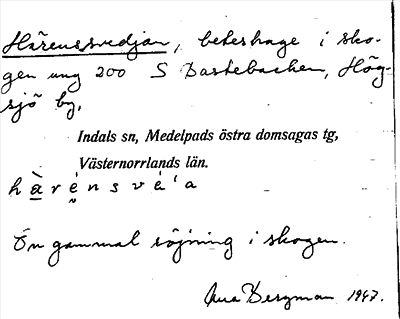 Härensvedjan, beteshage i sko-
gen ung 200 S Bastebacken, Hög-
sjö by,
Indals sn, Medelpads östra domsagas tg,
Västernorrlands län.
En gammal röjning i skogen.
Bergman 1947.